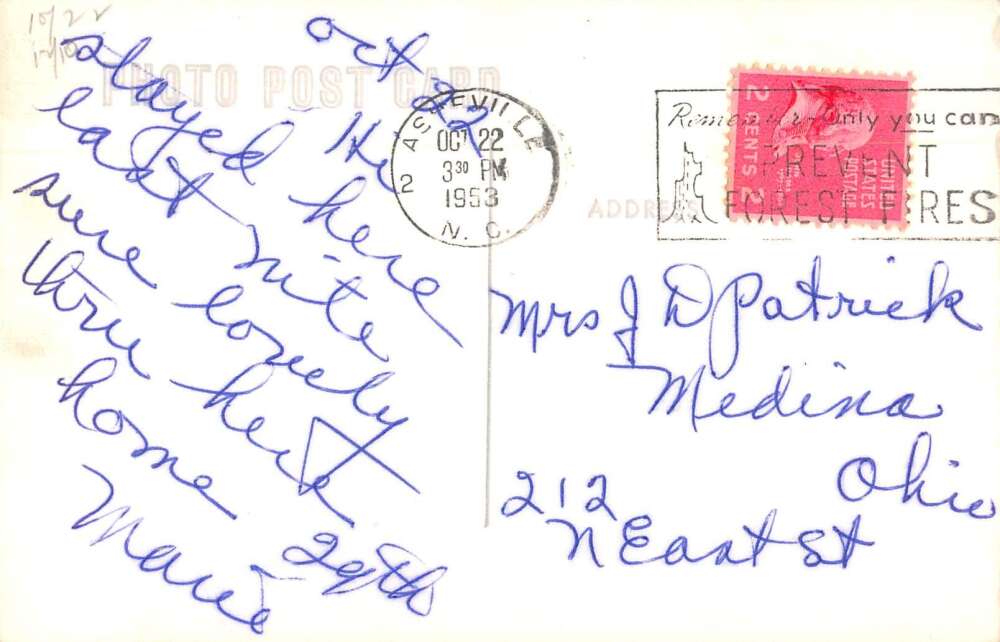 10/22
PHOTO POST CARD
oct 22
Hi
stayed here
last nite
sure lovely
thru here
home 29th
Marie
ASHEVILLE
OCT 22
3 30 PM
1953
2
N. C.
Remember-Only you can
PREVENT
FOREST FIRES
2 CENTS 2
UNITED
STATES
POSTAGE
ADDRESS
Mrs J D Patrick
Medina
Ohio
212
N East St